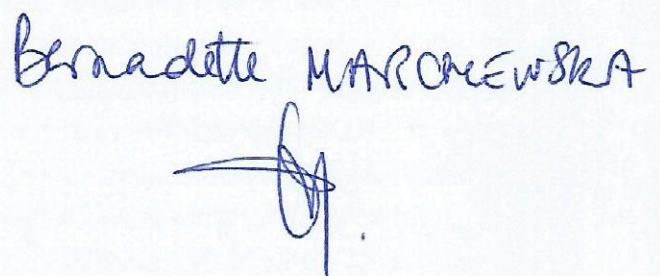 Bernadette MARCHEWSKA